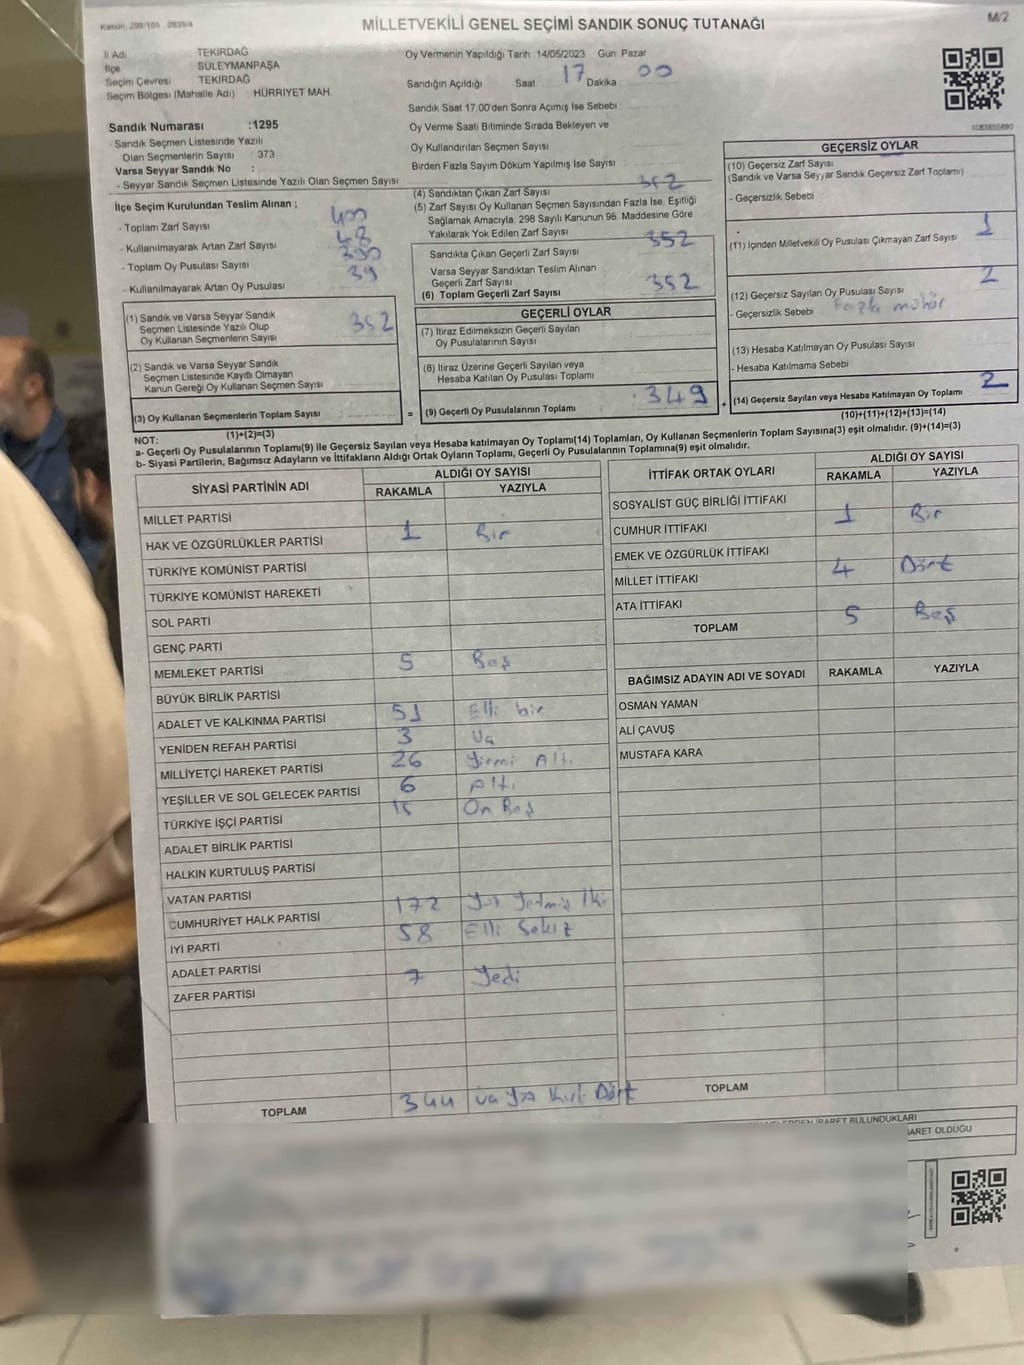 Kanun: 298/105 - 2839/4
MİLLETVEKİLİ GENEL SEÇİMİ SANDIK SONUÇ TUTANAĞI
M/2
İl Adı TEKİRDAĞ
İlçe SÜLEYMANPAŞA
Seçim Çevresi TEKİRDAĞ
Seçim Bölgesi (Mahalle Adı) HÜRRİYET MAH.
Sandık Numarası :1295
- Sandık Seçmen Listesinde Yazılı
Olan Seçmenlerin Sayısı : 373
Varsa Seyyar Sandık No :
- Seyyar Sandık Seçmen Listesinde Yazılı Olan Seçmen Sayısı
Oy Vermenin Yapıldığı Tarih 14/05/2023 Gün Pazar
Sandığın Açıldığı Saat 17 Dakika 00
Sandık Saat 17.00'den Sonra Açımış İse Sebebi
Oy Verme Saati Bitiminde Sırada Bekleyen ve
Oy Kullandırılan Seçmen Sayısı
Birden Fazla Sayım Döküm Yapılmış İse Sayısı
İlçe Seçim Kurulundan Teslim Alınan ;
- Toplam Zarf Sayısı 400
- Kullanılmayarak Artan Zarf Sayısı 48
- Toplam Oy Pusulası Sayısı
- Kullanılmayarak Artan Oy Pusulası 39
(1) Sandık ve Varsa Seyyar Sandık
Seçmen Listesinde Yazılı Olup
Oy Kullanan Seçmenlerin Sayısı 352
(2) Sandık ve Varsa Seyyar Sandık
Seçmen Listesinde Kayıtlı Olmayan
Kanun Gereği Oy Kullanan Seçmen Sayısı
(3) Oy Kullanan Seçmenlerin Toplam Sayısı
(1)+(2)=(3)
(4) Sandıktan Çıkan Zarf Sayısı 352
(5) Zarf Sayısı Oy Kullanan Seçmen Sayısından Fazla İse, Eşitliği
Sağlamak Amacıyla, 298 Sayılı Kanunun 96. Maddesine Göre
Yakılarak Yok Edilen Zarf Sayısı
Sandıkta Çıkan Geçerli Zarf Sayısı 352
Varsa Seyyar Sandıktan Teslim Alınan
Geçerli Zarf Sayısı
(6) Toplam Geçerli Zarf Sayısı 352
GEÇERLİ OYLAR
(7) İtiraz Edilmeksizin Geçerli Sayılan
Oy Pusulalarının Sayısı
(8) İtiraz Üzerine Geçerli Sayılan veya
Hesaba Katılan Oy Pusulası Toplamı
= (9) Geçerli Oy Pusulalarının Toplamı 349 +
GEÇERSİZ OYLAR
(10) Geçersiz Zarf Sayısı
(Sandık ve Varsa Seyyar Sandık Geçersiz Zarf Toplamı)
- Geçersizlik Sebebi
(11) İçinden Milletvekili Oy Pusulası Çıkmayan Zarf Sayısı 1
(12) Geçersiz Sayılan Oy Pusulası Sayısı 2
- Geçersizlik Sebebi Fazla mühür
(13) Hesaba Katılmayan Oy Pusulası Sayısı
- Hesaba Katılmama Sebebi
(14) Geçersiz Sayılan veya Hesaba Katılmayan Oy Toplamı 2
(10)+(11)+(12)+(13)=(14)
NOT:
a- Geçerli Oy Pusulalarının Toplamı(9) ile Geçersiz Sayılan veya Hesaba katılmayan Oy Toplamı(14) Toplamları, Oy Kullanan Seçmenlerin Toplam Sayısına(3) eşit olmalıdır. (9)+(14)=(3)
b- Siyasi Partilerin, Bağımsız Adayların ve İttifakların Aldığı Ortak Oyların Toplamı, Geçerli Oy Pusulalarının Toplamına(9) eşit olmalıdır.
SİYASİ PARTİNİN ADI ALDIĞI OY SAYISI
RAKAMLA YAZIYLA
MİLLET PARTİSİ
HAK VE ÖZGÜRLÜKLER PARTİSİ 1 Bir
TÜRKİYE KOMÜNİST PARTİSİ
TÜRKİYE KOMÜNİST HAREKETİ
SOL PARTİ
GENÇ PARTİ
MEMLEKET PARTİSİ 5 Beş
BÜYÜK BİRLİK PARTİSİ
ADALET VE KALKINMA PARTİSİ 51 Elli bir
YENİDEN REFAH PARTİSİ 3 Üç
MİLLİYETÇİ HAREKET PARTİSİ 26 Yirmi Altı
YEŞİLLER VE SOL GELECEK PARTİSİ 6 Altı
TÜRKİYE İŞÇİ PARTİSİ 15 On Beş
ADALET BİRLİK PARTİSİ
HALKIN KURTULUŞ PARTİSİ
VATAN PARTİSİ
CUMHURİYET HALK PARTİSİ 172 Yüz Yetmiş İki
İYİ PARTİ 58 Elli Sekiz
ADALET PARTİSİ
ZAFER PARTİSİ 7 Yedi
TOPLAM 344 Üç Yüz Kırk Dört
İTTİFAK ORTAK OYLARI ALDIĞI OY SAYISI
RAKAMLA YAZIYLA
SOSYALİST GÜÇ BİRLİĞİ İTTİFAKI
CUMHUR İTTİFAKI 1 Bir
EMEK VE ÖZGÜRLÜK İTTİFAKI
MİLLET İTTİFAKI 4 Dört
ATA İTTİFAKI
TOPLAM 5 Beş
BAĞIMSIZ ADAYIN ADI VE SOYADI RAKAMLA YAZIYLA
OSMAN YAMAN
ALİ ÇAVUŞ
MUSTAFA KARA
TOPLAM
İBARET BULUNDUKLARI
İBARET OLDUĞU